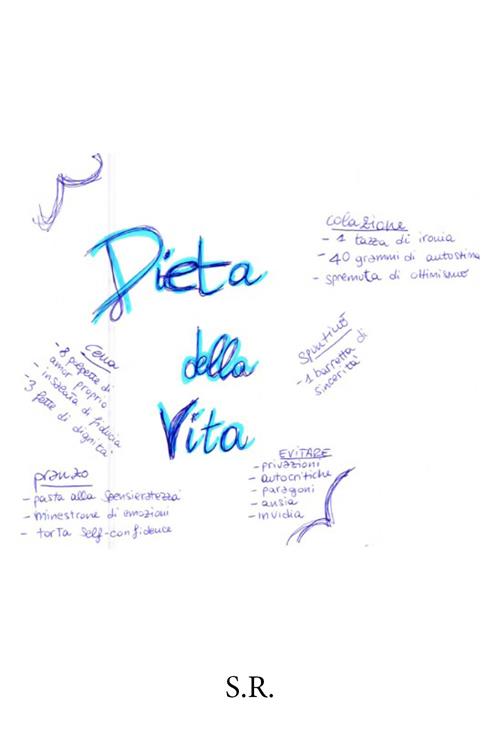 Dieta
della
Vita
colazione
- 1 tazza di ironia
- 40 grammi di autostima
- spremuta di ottimismo
spuntino
- 1 barretta di
sincerità
Cena
- 8 polpette di
amor proprio
- insalata di fiducia
- 3 fette di dignita'
pranzo
- pasta alla spensieratezza
- minestrone di emozioni
- torta self-confidence
EVITARE
- privazioni
- autocritiche
- paragoni
- ansia
- invidia
S.R.